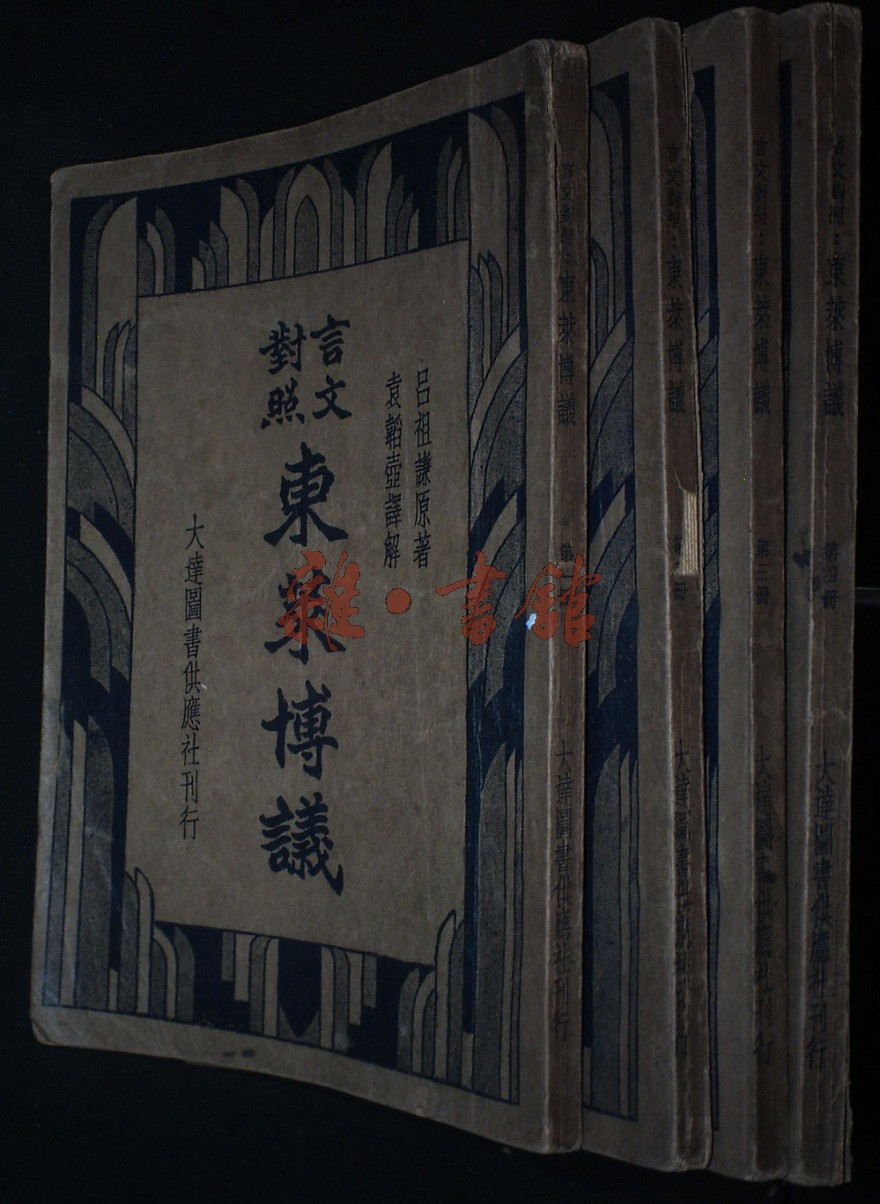 呂祖謙原著
袁韜壺譯解
言文
對照
東萊博議
大達圖書供應社刊行
雜·書館
言文對照：東萊博議
第一冊
大達圖書供應社刊行
言文對照：東萊博議
冊
大達圖書供應社刊行
言文對照：東萊博議
第三冊
大達圖書供應社刊行
言文對照：東萊博議
第四冊
大達圖書供應社刊行